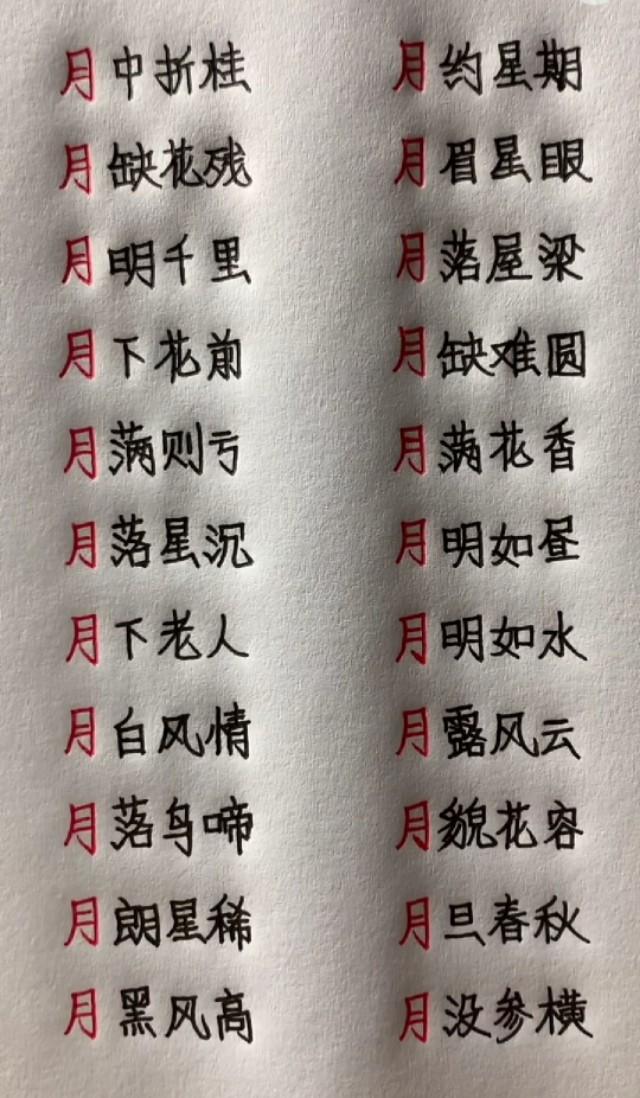 月中折桂 月约星期
月缺花残 月眉星眼
月明千里 月落屋梁
月下花前 月缺难圆
月满则亏 月满花香
月落星沉 月明如昼
月下老人 月明如水
月白风情 月露风云
月落鸟啼 月貌花容
月朗星稀 月旦春秋
月黑风高 月没参横